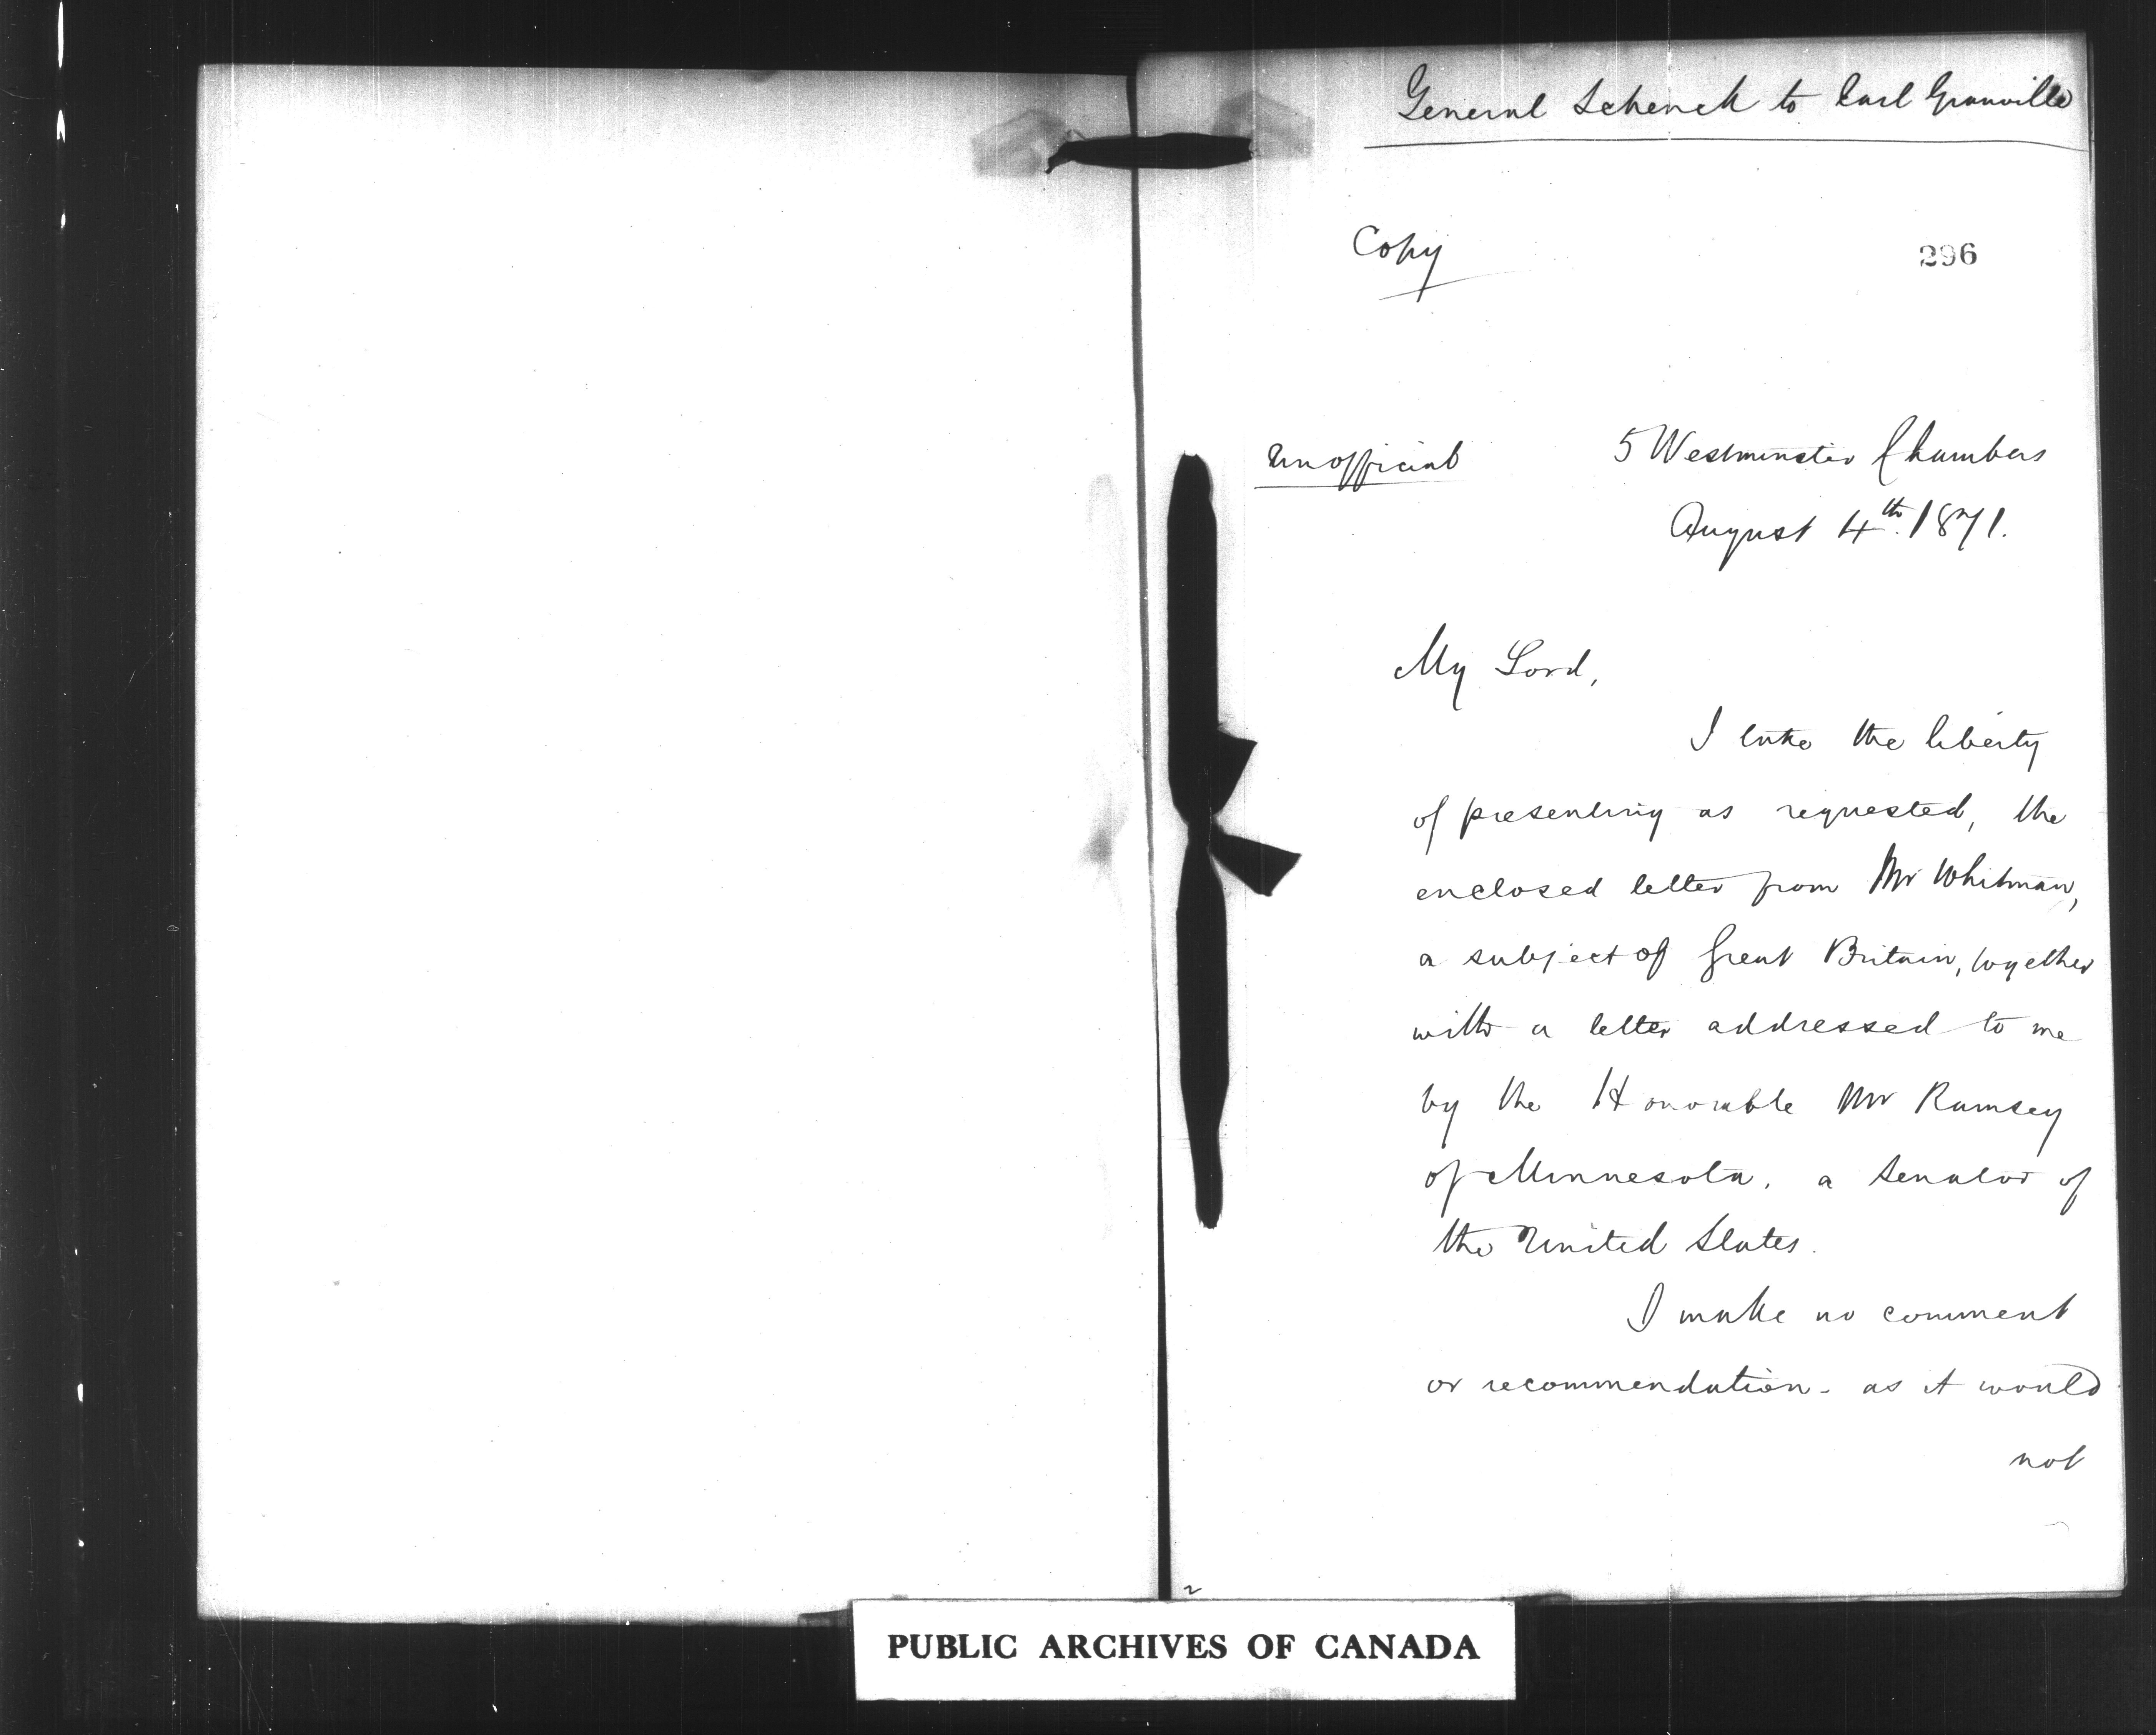 General Schenck to Earl Granville
Copy
296
Unofficial
5 Westminster Chambers
August 4th. 1871.
My Lord,
I take the liberty
of presenting as requested, the
enclosed letter from Mr Whitman,
a subject of Great Britain, together
with a letter addressed to me
by the Honorable Mr Ramsey
of Minnesota, a Senator of
the United States.
I make no comment
or recommendation - as it would
not
PUBLIC ARCHIVES OF CANADA